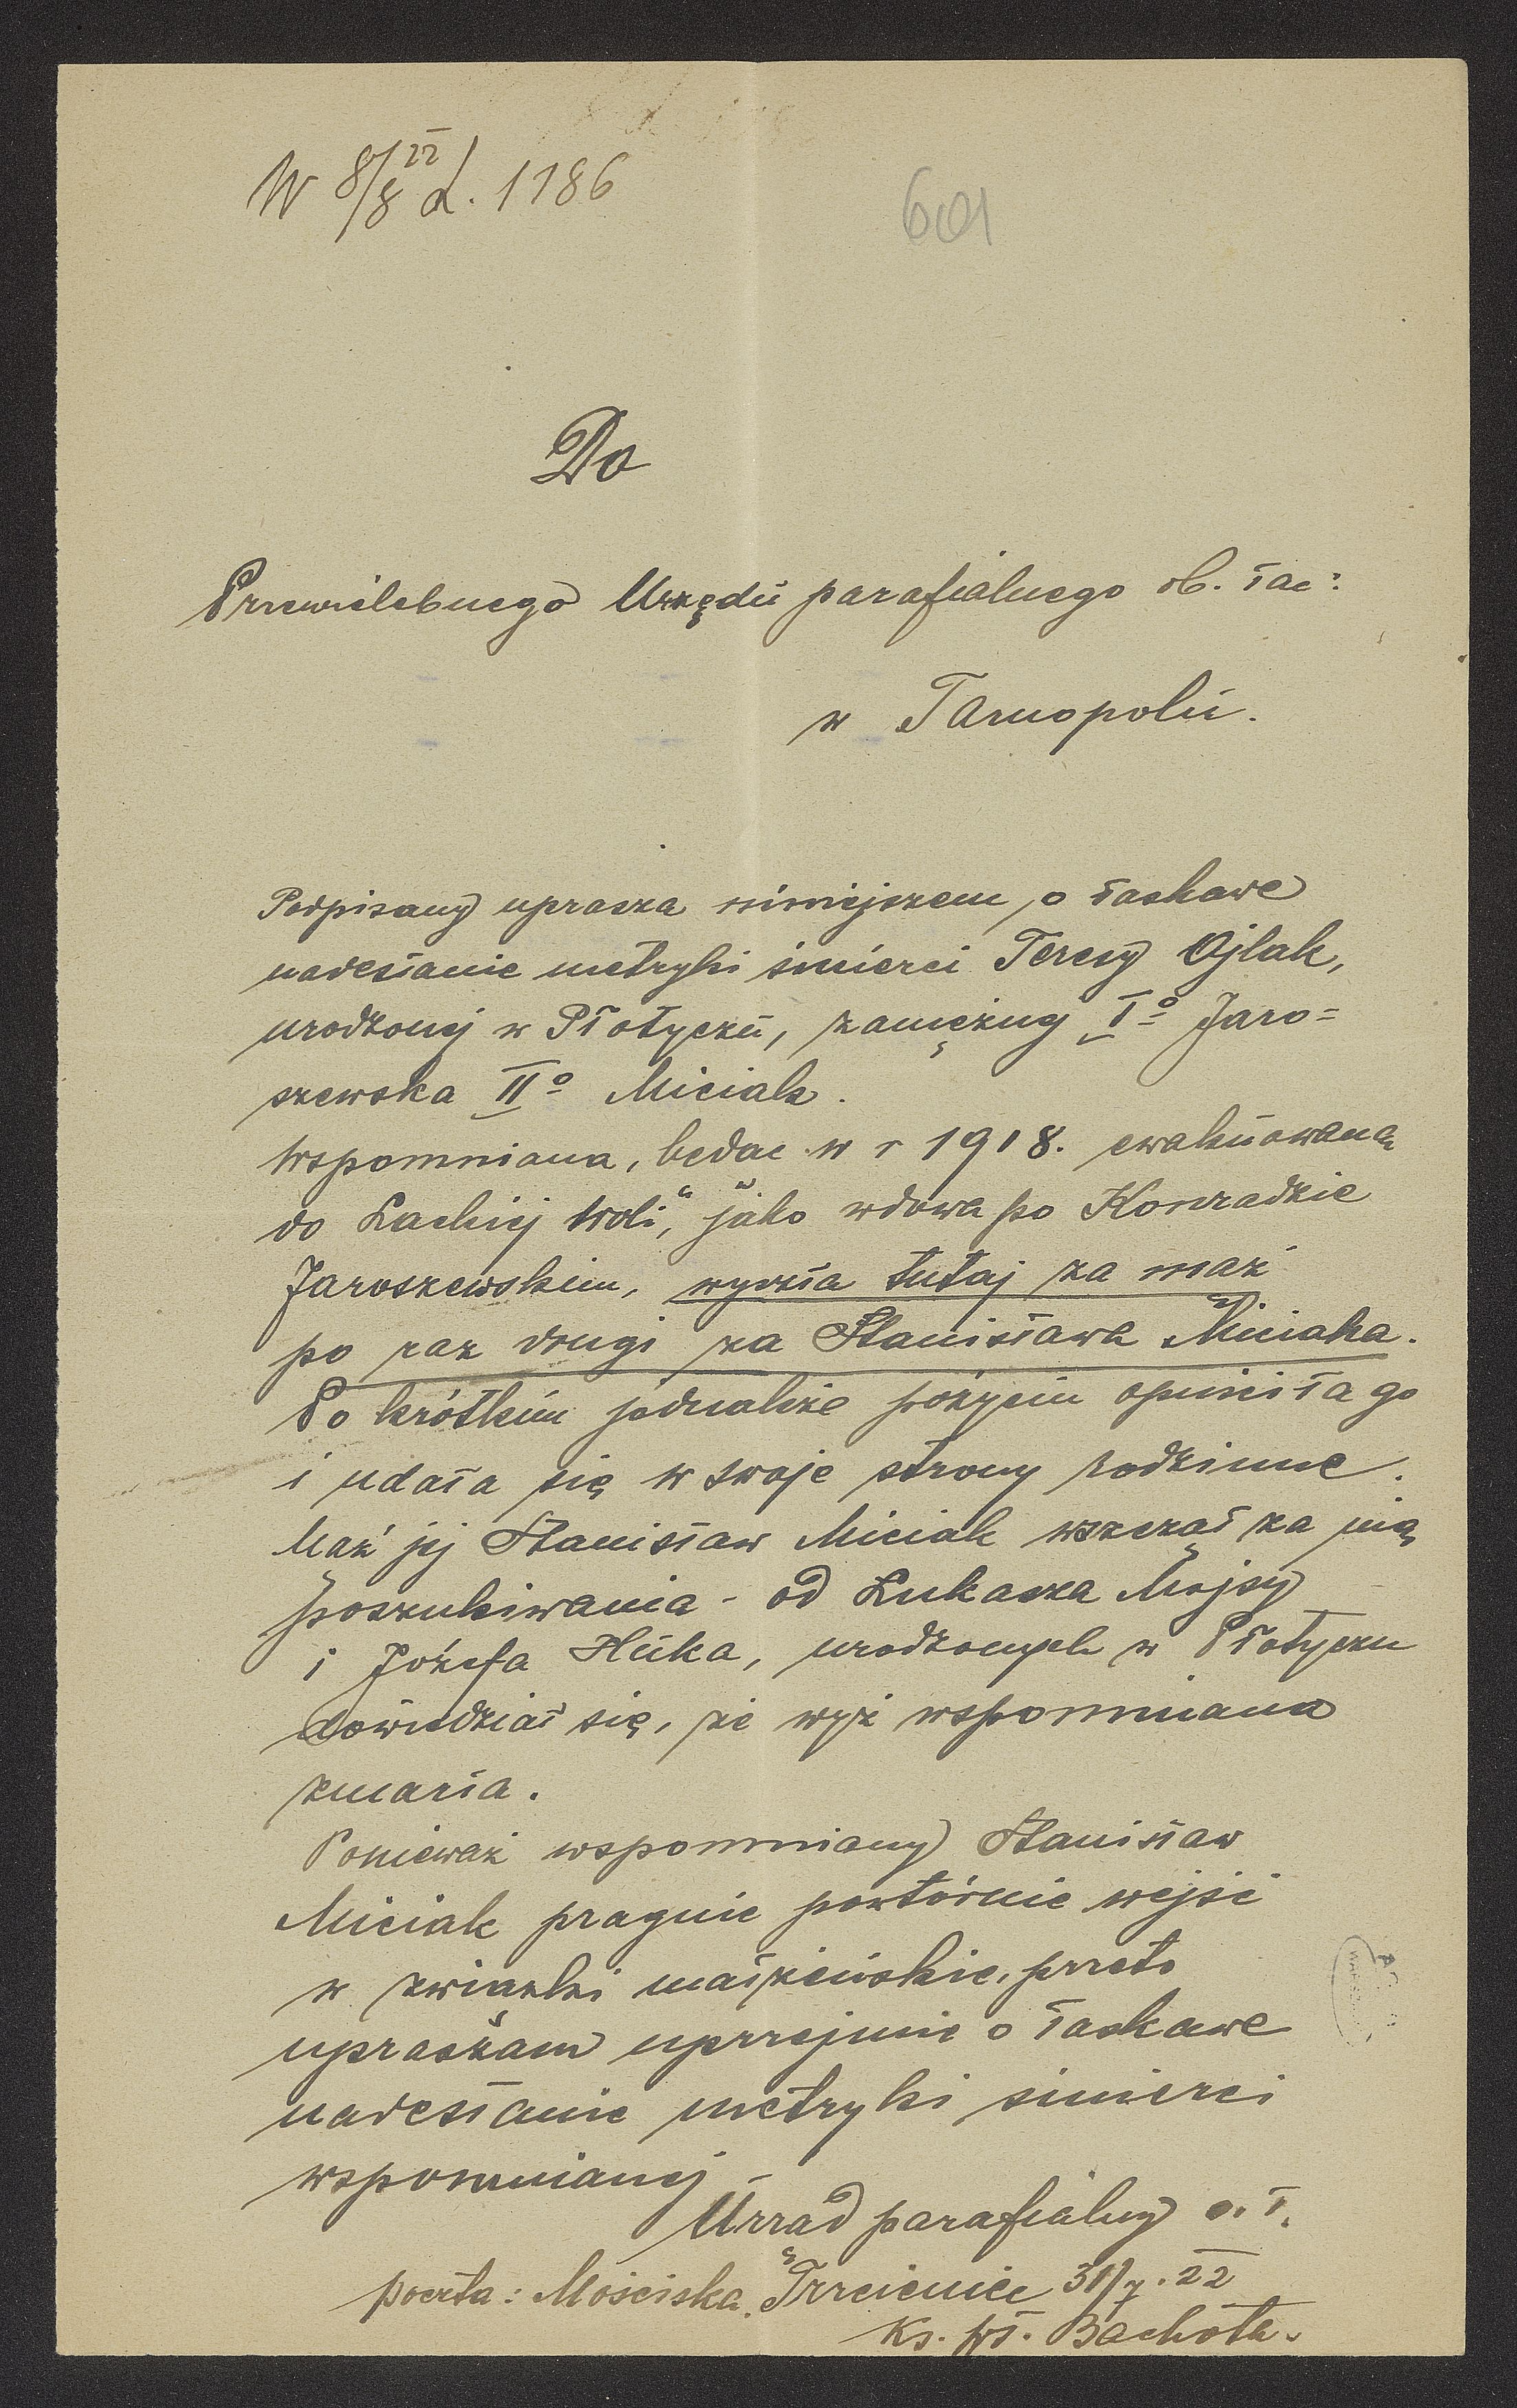 W 8/8 22 L. 1186
601
Do
Przewielebnego Urzędu parafialnego ob. łac:
w Tarnopolu.
Podpisany uprasza niniejszem o łaskawe
nadesłanie metryki śmierci Teresy Ojlak,
urodzonej w Płotyczu, zamężnej I° Jaro=
szewska II° Miciak.
Wspomniana, będąc w r 1918. ewakuowaną
do Lackiej Woli, jako wdowa po Konradzie
Jaroszewskim, wyszła tutaj za mąż
po raz drugi za Stanisława Miciaka.
Po krótkim jednakże pożyciu opuściła go
i udała się w swoje strony rodzinne.
Mąż jej Stanisław Miciak wszczął za nią
poszukiwania - od Łukasza Mojsy
i Józefa Huka, urodzonych w Płotyczu
dowiedział się, że wyż wspomniana
zmarła.
Ponieważ wspomniany Stanisław
Miciak pragnie powtórnie wejść
w związki małżeńskie, przeto
upraszam uprzejmie o łaskawe
nadesłanie metryki śmierci
wspomnianej -
Urząd parafialny o. ł.
poczta: Mościska. Trzcieniec 31/7. 22
Ks. Wł. Bachóta.